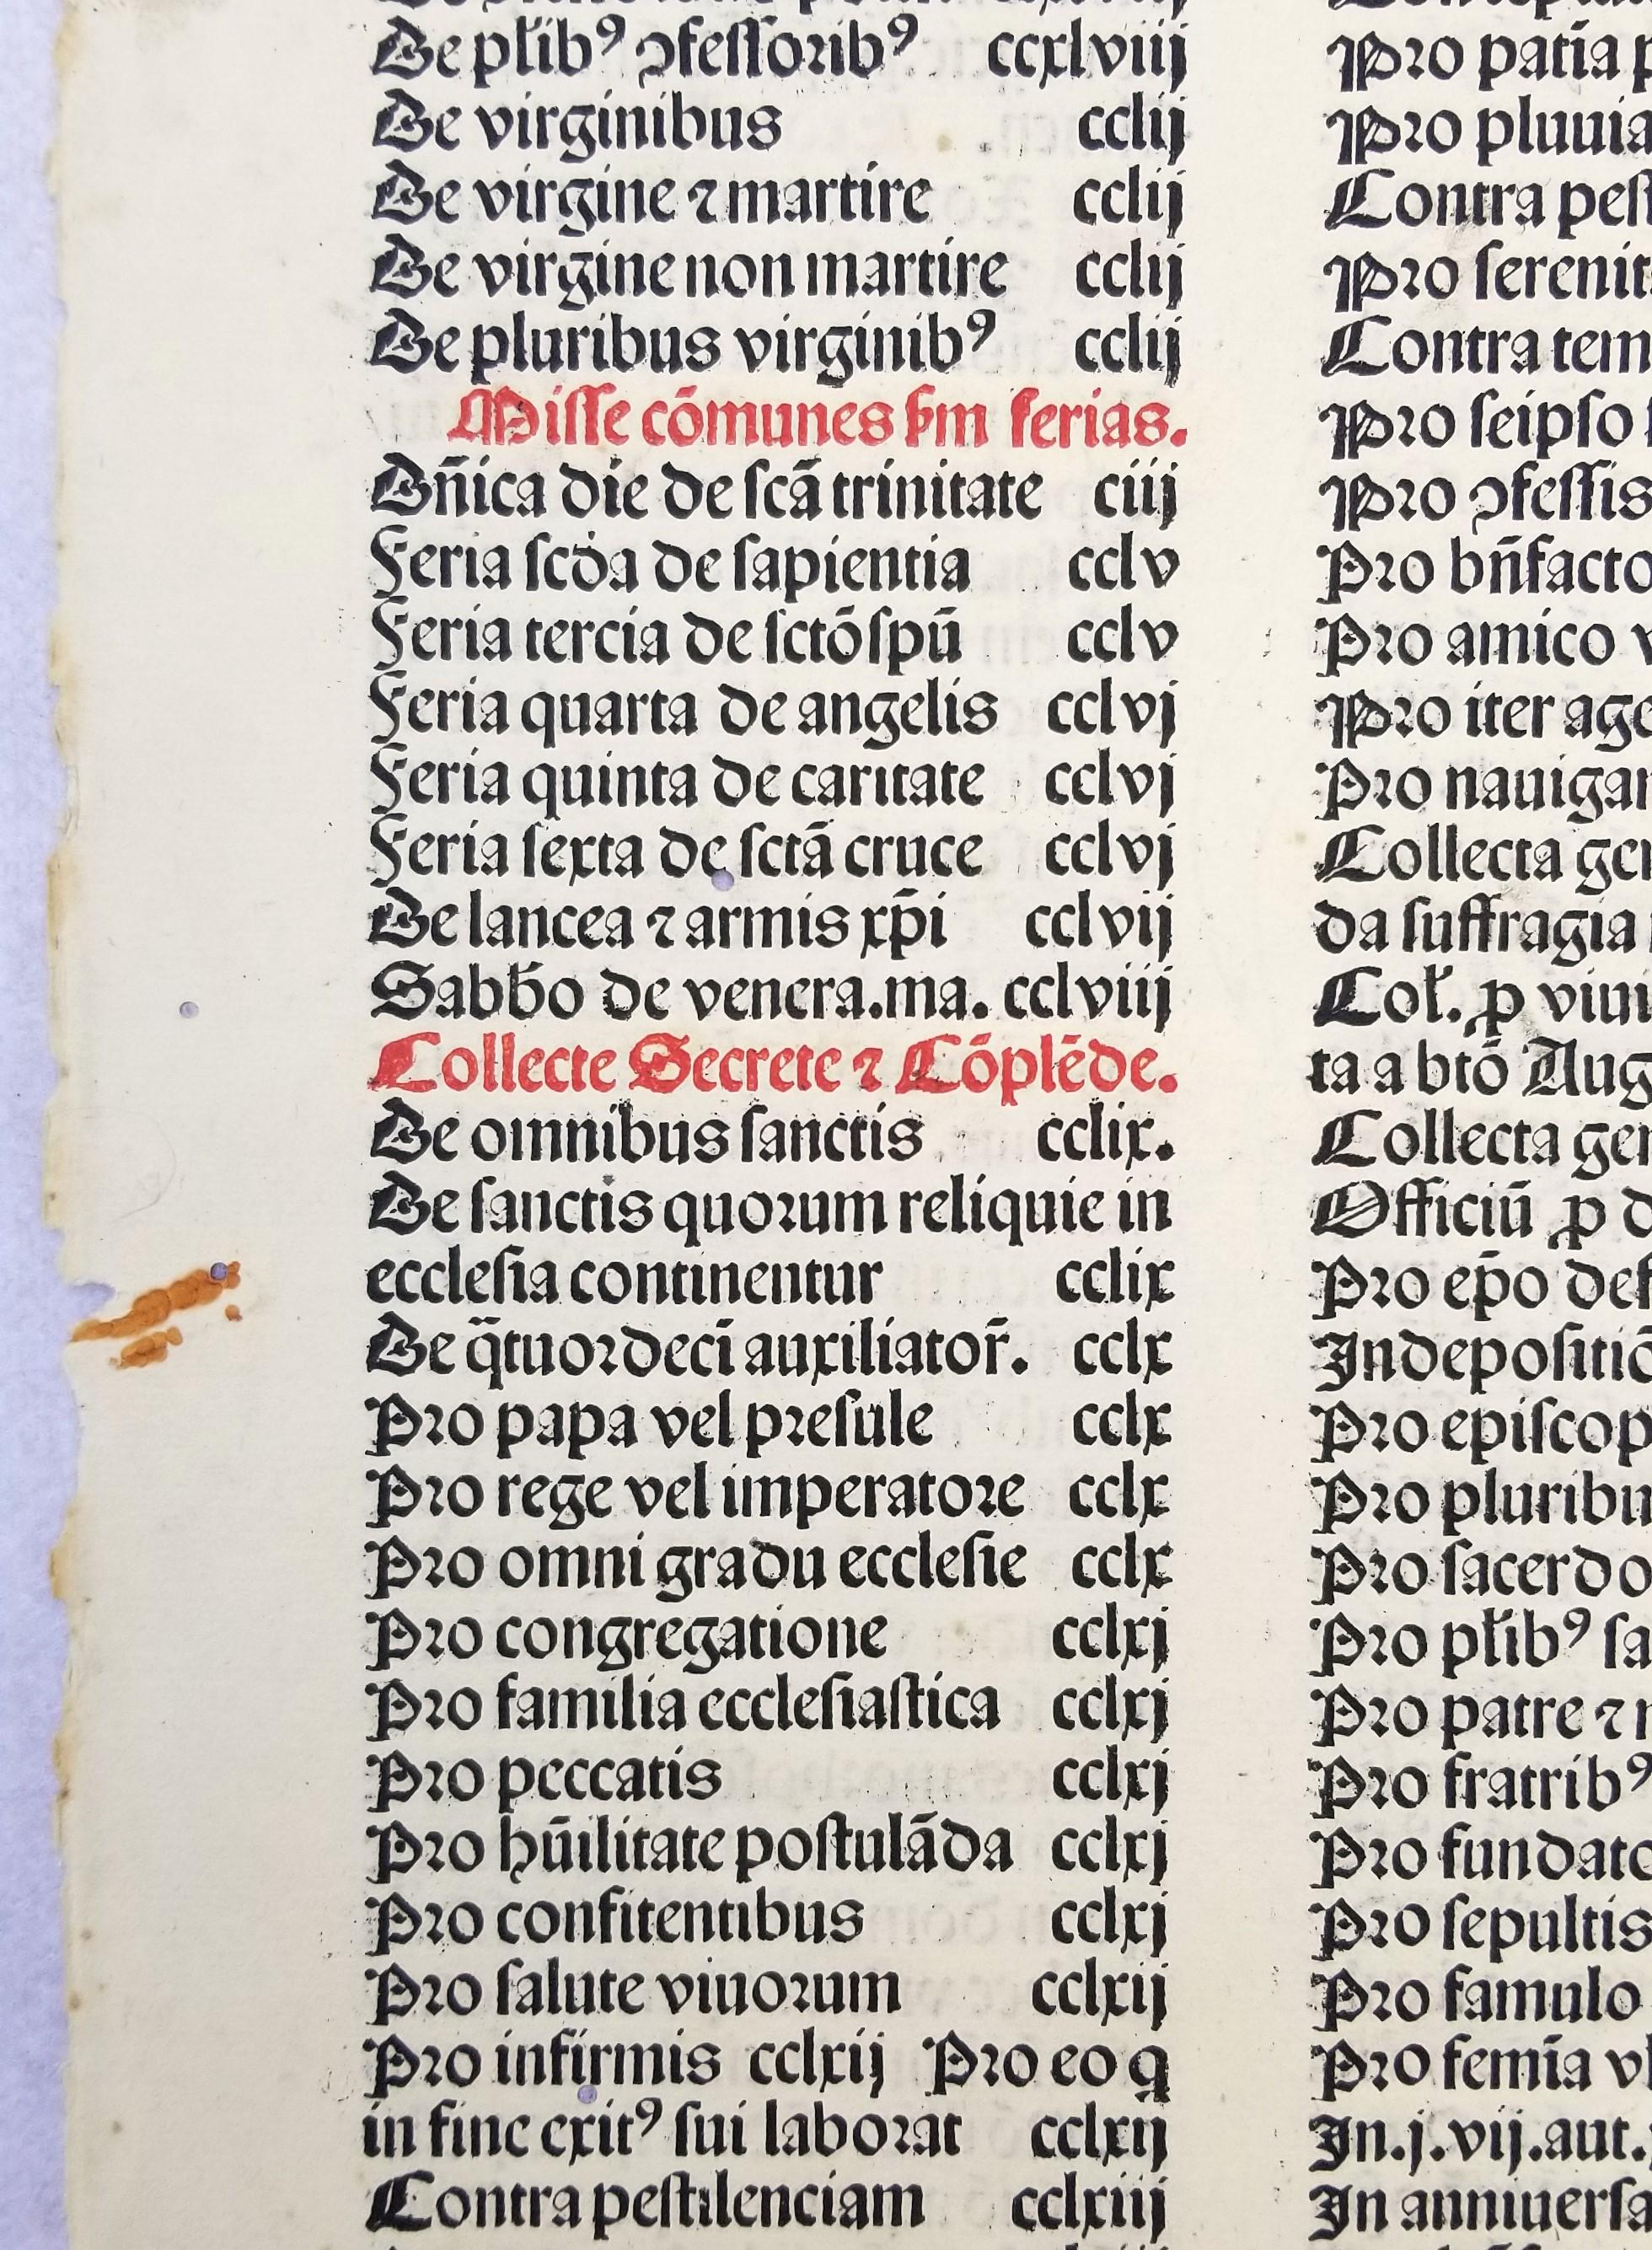 De pl̄ib⁹ ɔfeſſorib⁹ ccxlviij
De virginibus cclij
De virgine ⁊ martire cclij
De virgine non martire cclij
De pluribus virginib⁹ cclij
Miſſe cōmunes ſm̄ ferias.
Dn̄ica die de ſcā trinitate ciij
Feria ſcd̄a de ſapientia cclv
Feria tercia de ſctō ſpū cclv
Feria quarta de angelis cclvj
Feria quinta de caritate cclvj
Feria ſexta de ſctā cruce cclvj
De lancea ⁊ armis xp̄i cclvij
Sabb̄o de venera.ma. cclviij
Collecte Secrete ⁊ Cōplēde.
De omnibus ſanctis cclix.
De ſanctis quorum reliquie in
eccleſia continentur cclix
De q̄tuordecī auxiliator̄. cclx
Pro papa vel preſule cclx
Pro rege vel imperatore cclx
Pro omni gradu eccleſie cclx
Pro congregatione cclxj
Pro familia eccleſiaſtica cclxj
Pro peccatis cclxj
Pro hūilitate poſtulāda cclxj
Pro confitentibus cclxj
Pro ſalute viuorum cclxij
Pro infirmis cclxij Pro eo q
in fine exit⁹ ſui laborat cclxij
Contra peſtilenciam cclxiij
Pro patīa p
Pro pluuia
Contra peſ
Pro ſerenit
Contra tem
Pro ſeipſo
Pro ɔfeſſis
Pro bn̄facto
Pro amico v
Pro iter age
Pro nauigan
Collecta gen
da ſuffragia
Col̄. ꝓ viui
ta a btō Aug
Collecta gen
Officiū ꝓ d
Pro ep̄o def
In depoſitiō
Pro epiſcop
Pro pluribu
Pro ſacerdo
Pro pl̄ib⁹ ſa
Pro patre ⁊ m
Pro fratrib⁹
Pro fundato
Pro ſepultis
Pro famulo
Pro femīa vl
In.j.vij.aut.
In anniuerſa